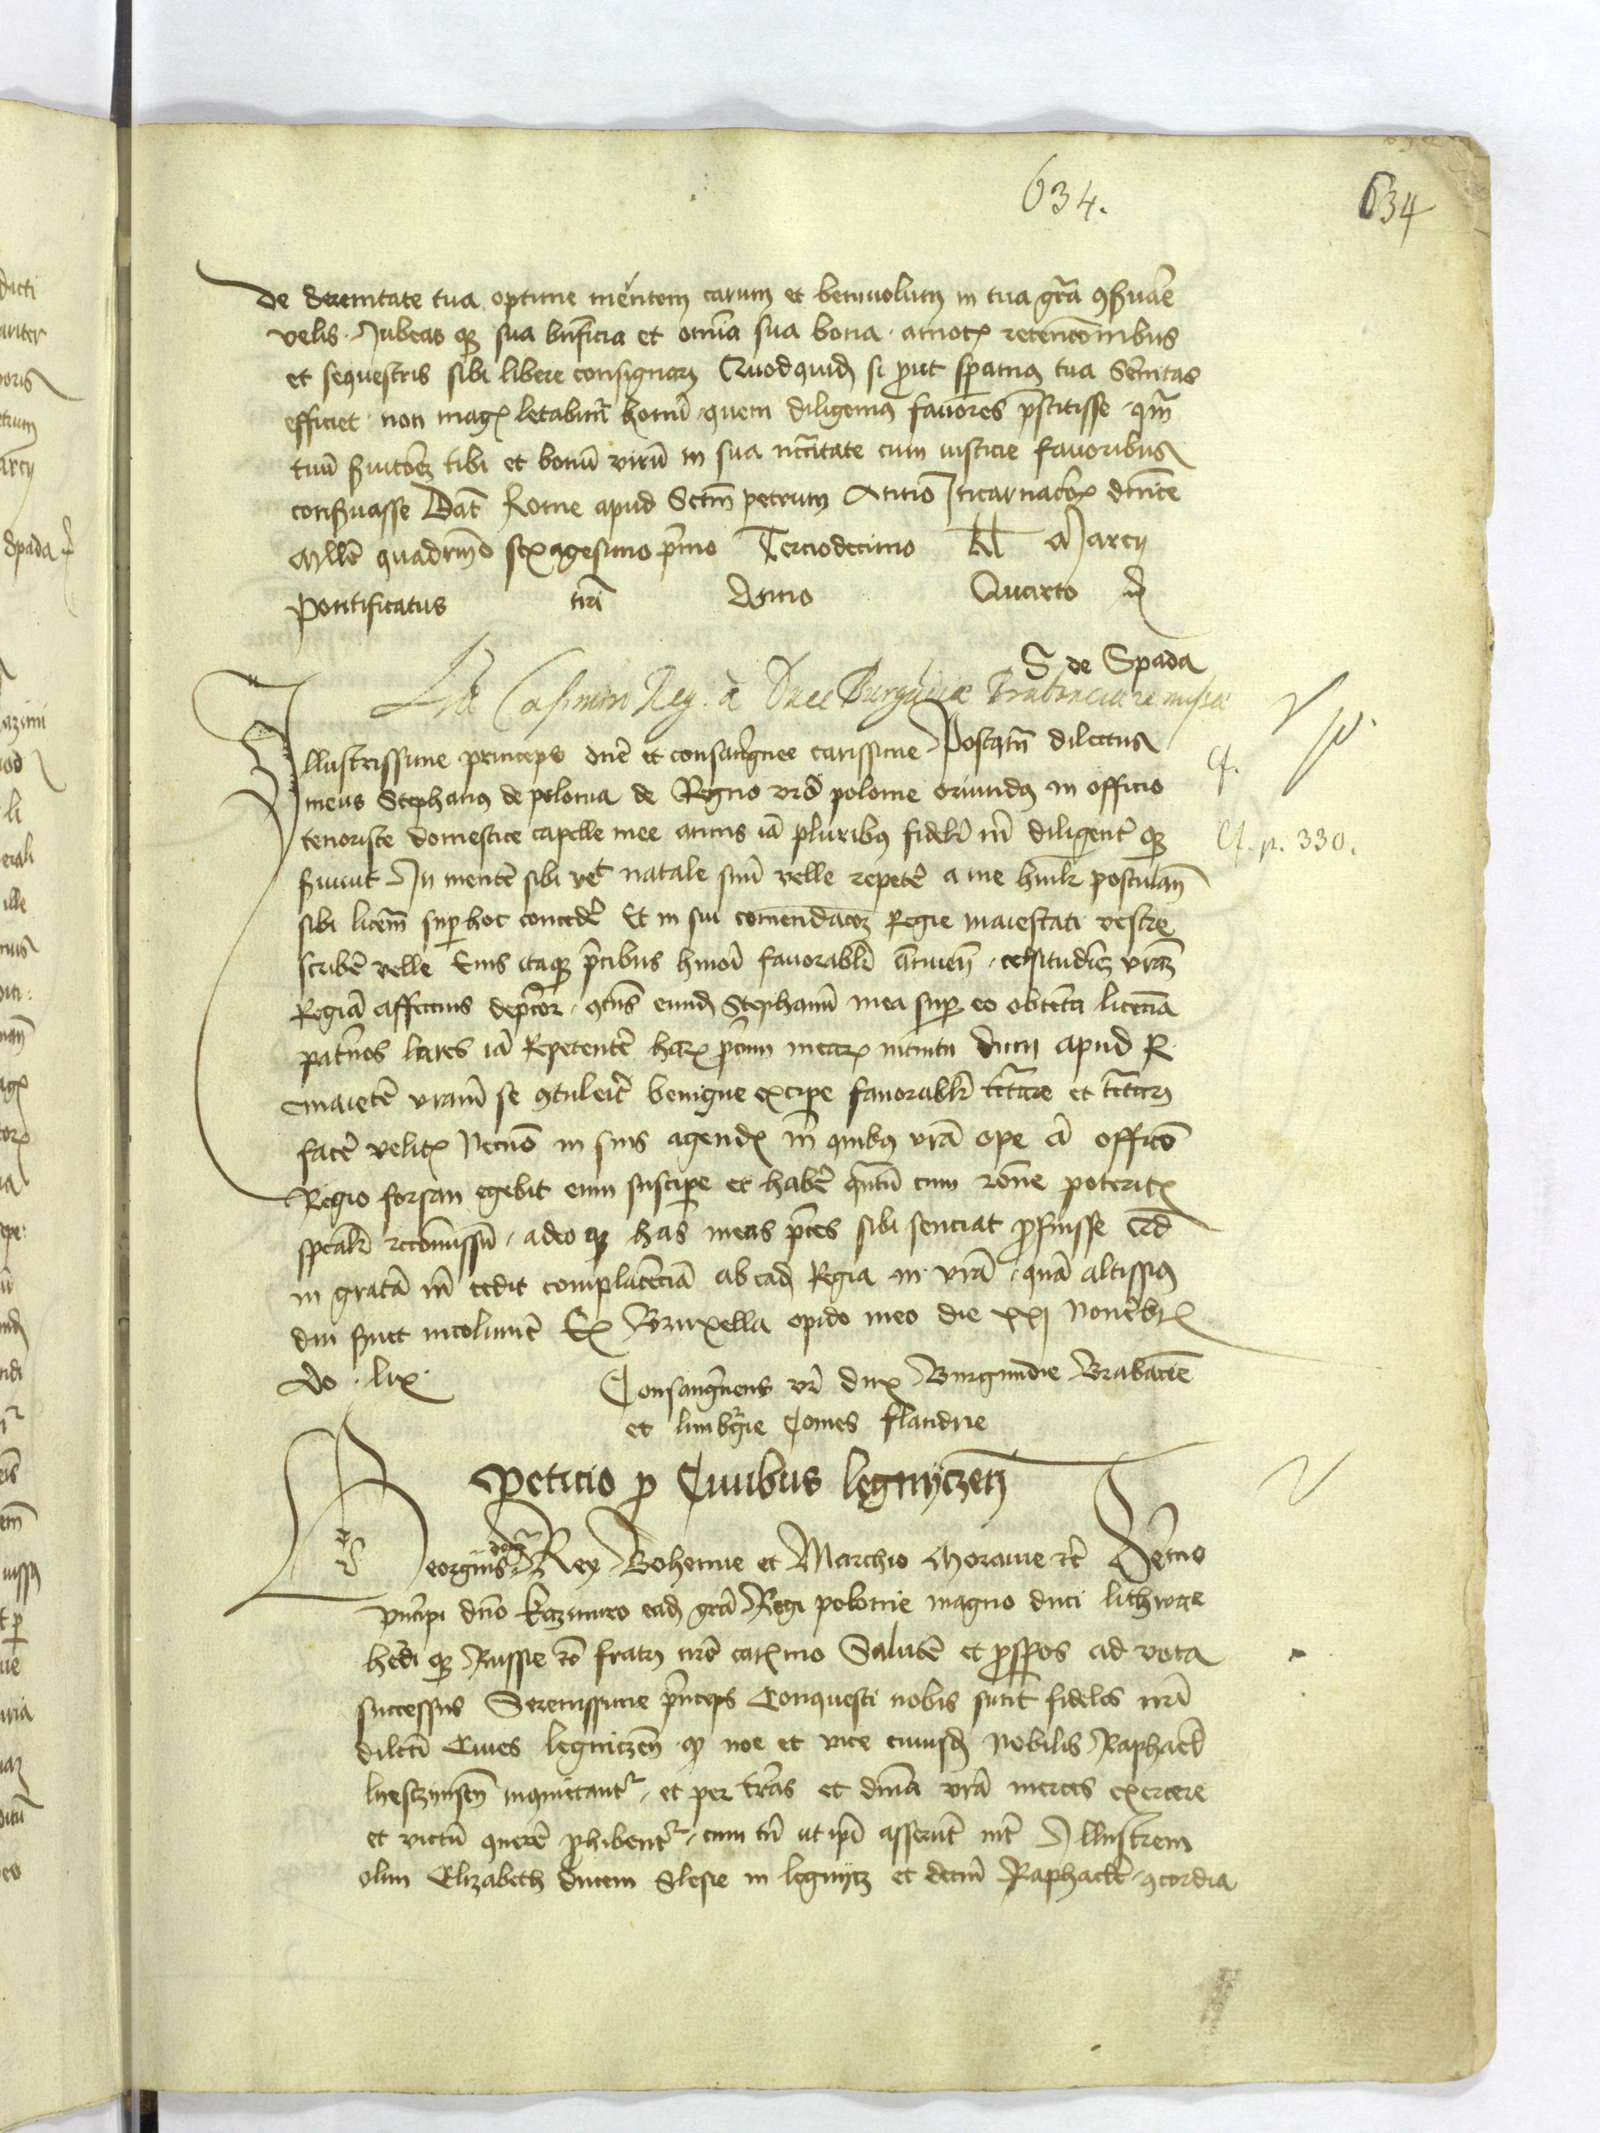 634.
634
de Serenitate tua optime meritum carum et benivolum in tua gra 9servare
velis. Jubeas q3 sua bnficia et omnia sua bona amotis retentionibus
et sequestris sibi libere consignari Quodquid si prout speramus tua Sernitas
efficiet non magis letabitur homini quem diligimus favores prestitisse qm
tuu servitorem tibi et bonu viru in sua ncitate cum iusticie favoribus
conservasse Dat Rome apud Sctm petrum Anno Incarnacois dnice
Mille quadringmo sexagesimo primo Terciodecimo kl Marcy
Pontificatus nri Anno Quarto
S de Spada
Lrae Casimiro Regi a Duce Burgudiae Brabanciae missae
Illustrissime princeps dne et consaguinee carissime Postqm dilectus
meus Stephanus de polonia de Regno vro polonie oriundus in officio
tenoriste domestice capelle mee annis ia pluribus fidelr m diligent q3
servivit In mente sibi vet natale solu velle repete a me humilr postulans
sibi licenciam super hoc concede Et in sui comendacoem Regie maiestati vestre
scribe velle Eius itaq3 precibus hmoi favorabilr annuens celsitudiem vram
Regia affectius deprecor qtus eund Stephanu mea super eo obtenta licecia
paternos lares ia Repetente haru precum mearu intuitu dum apud R
maiestate vram se 9tulerit benigne excipe favorablr tractare et tractari
face velitis Necno in suis agendis in quibus vra ope a officio
Regio forsan egebit eum suscipe et habe quantu cum rone poteritis
specialr recomissu adeo q3 has meas preces sibi senciat profuisse Id
in grata m cedit complacencia ab ead Regia m vra qua altissimus
diu servet incolume Ex Bruxella opido meo die xxj Novebris
Ao lix Consanguineus vr dux Burgundie Brabacie
et limburgie Comes flandrie
cf.
Cf. p. 330.
Peticio p Civibus legnyczen
Georgius dei gra Rex Bohemie et Marchio Moravie etc Sermo
principi dno kazimiro ead gra Regi polonie magno duci lithwae
hedi q3 Russie etc fratri nro carismo Salute et prosperos ad vota
successus Serenissime princeps Conquesti nobis sunt fideles nri
dilcti Cives legniczen q noe et vice cuiusd Nobilis Raphael
lyesczinsky inquietantur et per terras et dnia vra merces exercere
et victu quere prohibentur cum tn ut ipi asserut int Illustrem
olim Elizabeth ducem Slesie in legnycz et dctm Raphaele 9cordia